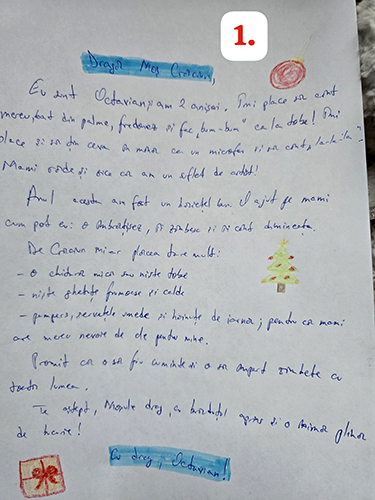 1.
Dragă Moș Crăciun,
Eu sunt Octavian și am 2 anișori. Îmi place să cânt
mereu, bat din palme, fredonez și fac „bum-bum" ca la tobe! Îmi
place și să țin ceva în mână ca un microfon și să cânt, „la-la-la".
Mami râde și zice că am un suflet de artist!
Anul acesta am fost un băiețel bun. O ajut pe mami
cum pot eu: o îmbrățișez, îi zâmbesc și îi cânt dimineața.
De Crăciun mi-ar plăcea tare mult:
- o chitară mică sau niște tobe
- niște ghetuțe frumoase și calde
- pampers, șervețele umede și hăinuțe de iarnă; pentru că mama
are mereu nevoie de ele pentru mine.
Promit că o să fiu cuminte și o să împart zâmbete cu
toată lumea.
Te aștept, Moșule drag, cu brăduțul aprins și o inimă plină
de bucurie!
Cu drag, Octavian!